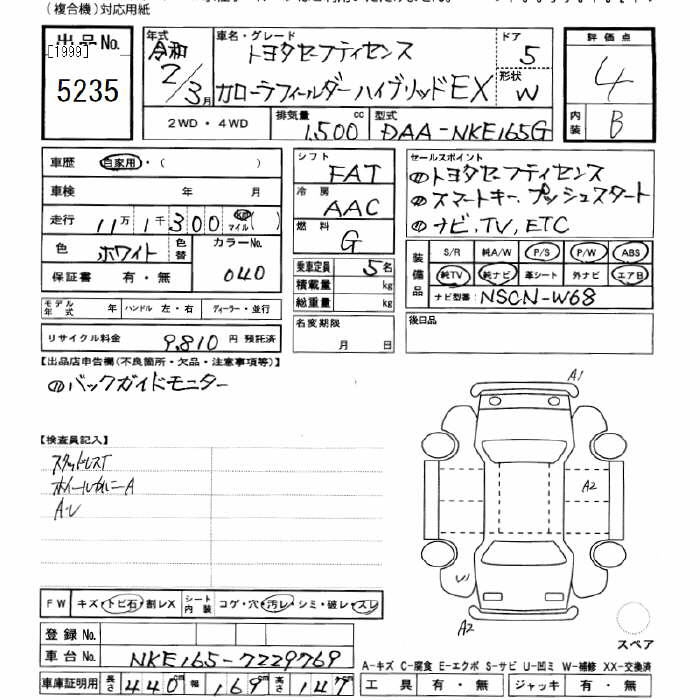 (複合機)対応用紙
出品No. [1999] 5235
年式 令和 2/3月
車名・グレード トヨタセーフティセンス
カローラフィールダーハイブリッドEX
ドア 5
形状 W
評価点 4
内装 B
2WD・4WD
排気量 1,500 cc
型式 DAA-NKE165G
車歴 自家用・( )
車検 年 月
走行 11万1千300 km マイル( )
色 ホワイト 色替 カラーNo. 040
保証書 有・無
モデル年式 年 ハンドル 左・右 ディーラー・並行
リサイクル料金 9,810 円 預託済
シフト FAT
冷房 AAC
燃料 G
乗車定員 5名
積載量 kg
総重量 kg
名変期限 月 日
セールスポイント
①トヨタセーフティセンス
①スマートキー、プッシュスタート
①ナビ、TV、ETC
装備品 S/R 純A/W P/S P/W ABS
純TV 純ナビ 革シート 外ナビ エアB
ナビ型番: NSCN-W68
後日品
【出品店申告欄(不良箇所・欠品・注意事項等)】
①バックガイドモニター
【検査員記入】
スタッドレスT
ホイールカバーA
A・U
A1
A2
U1
A2
スペア
FW キズ・トビ石・割レX シート内装 コゲ・穴・汚レ・シミ・破レ・スレ
登録No.
車台No. NKE165-7229769
車庫証明用 長さ 440 幅 169 高さ 147
A-キズ C-腐食 E-エクボ S-サビ U-凹ミ W-補修 XX-交換済
工具 有・無 ジャッキ 有・無